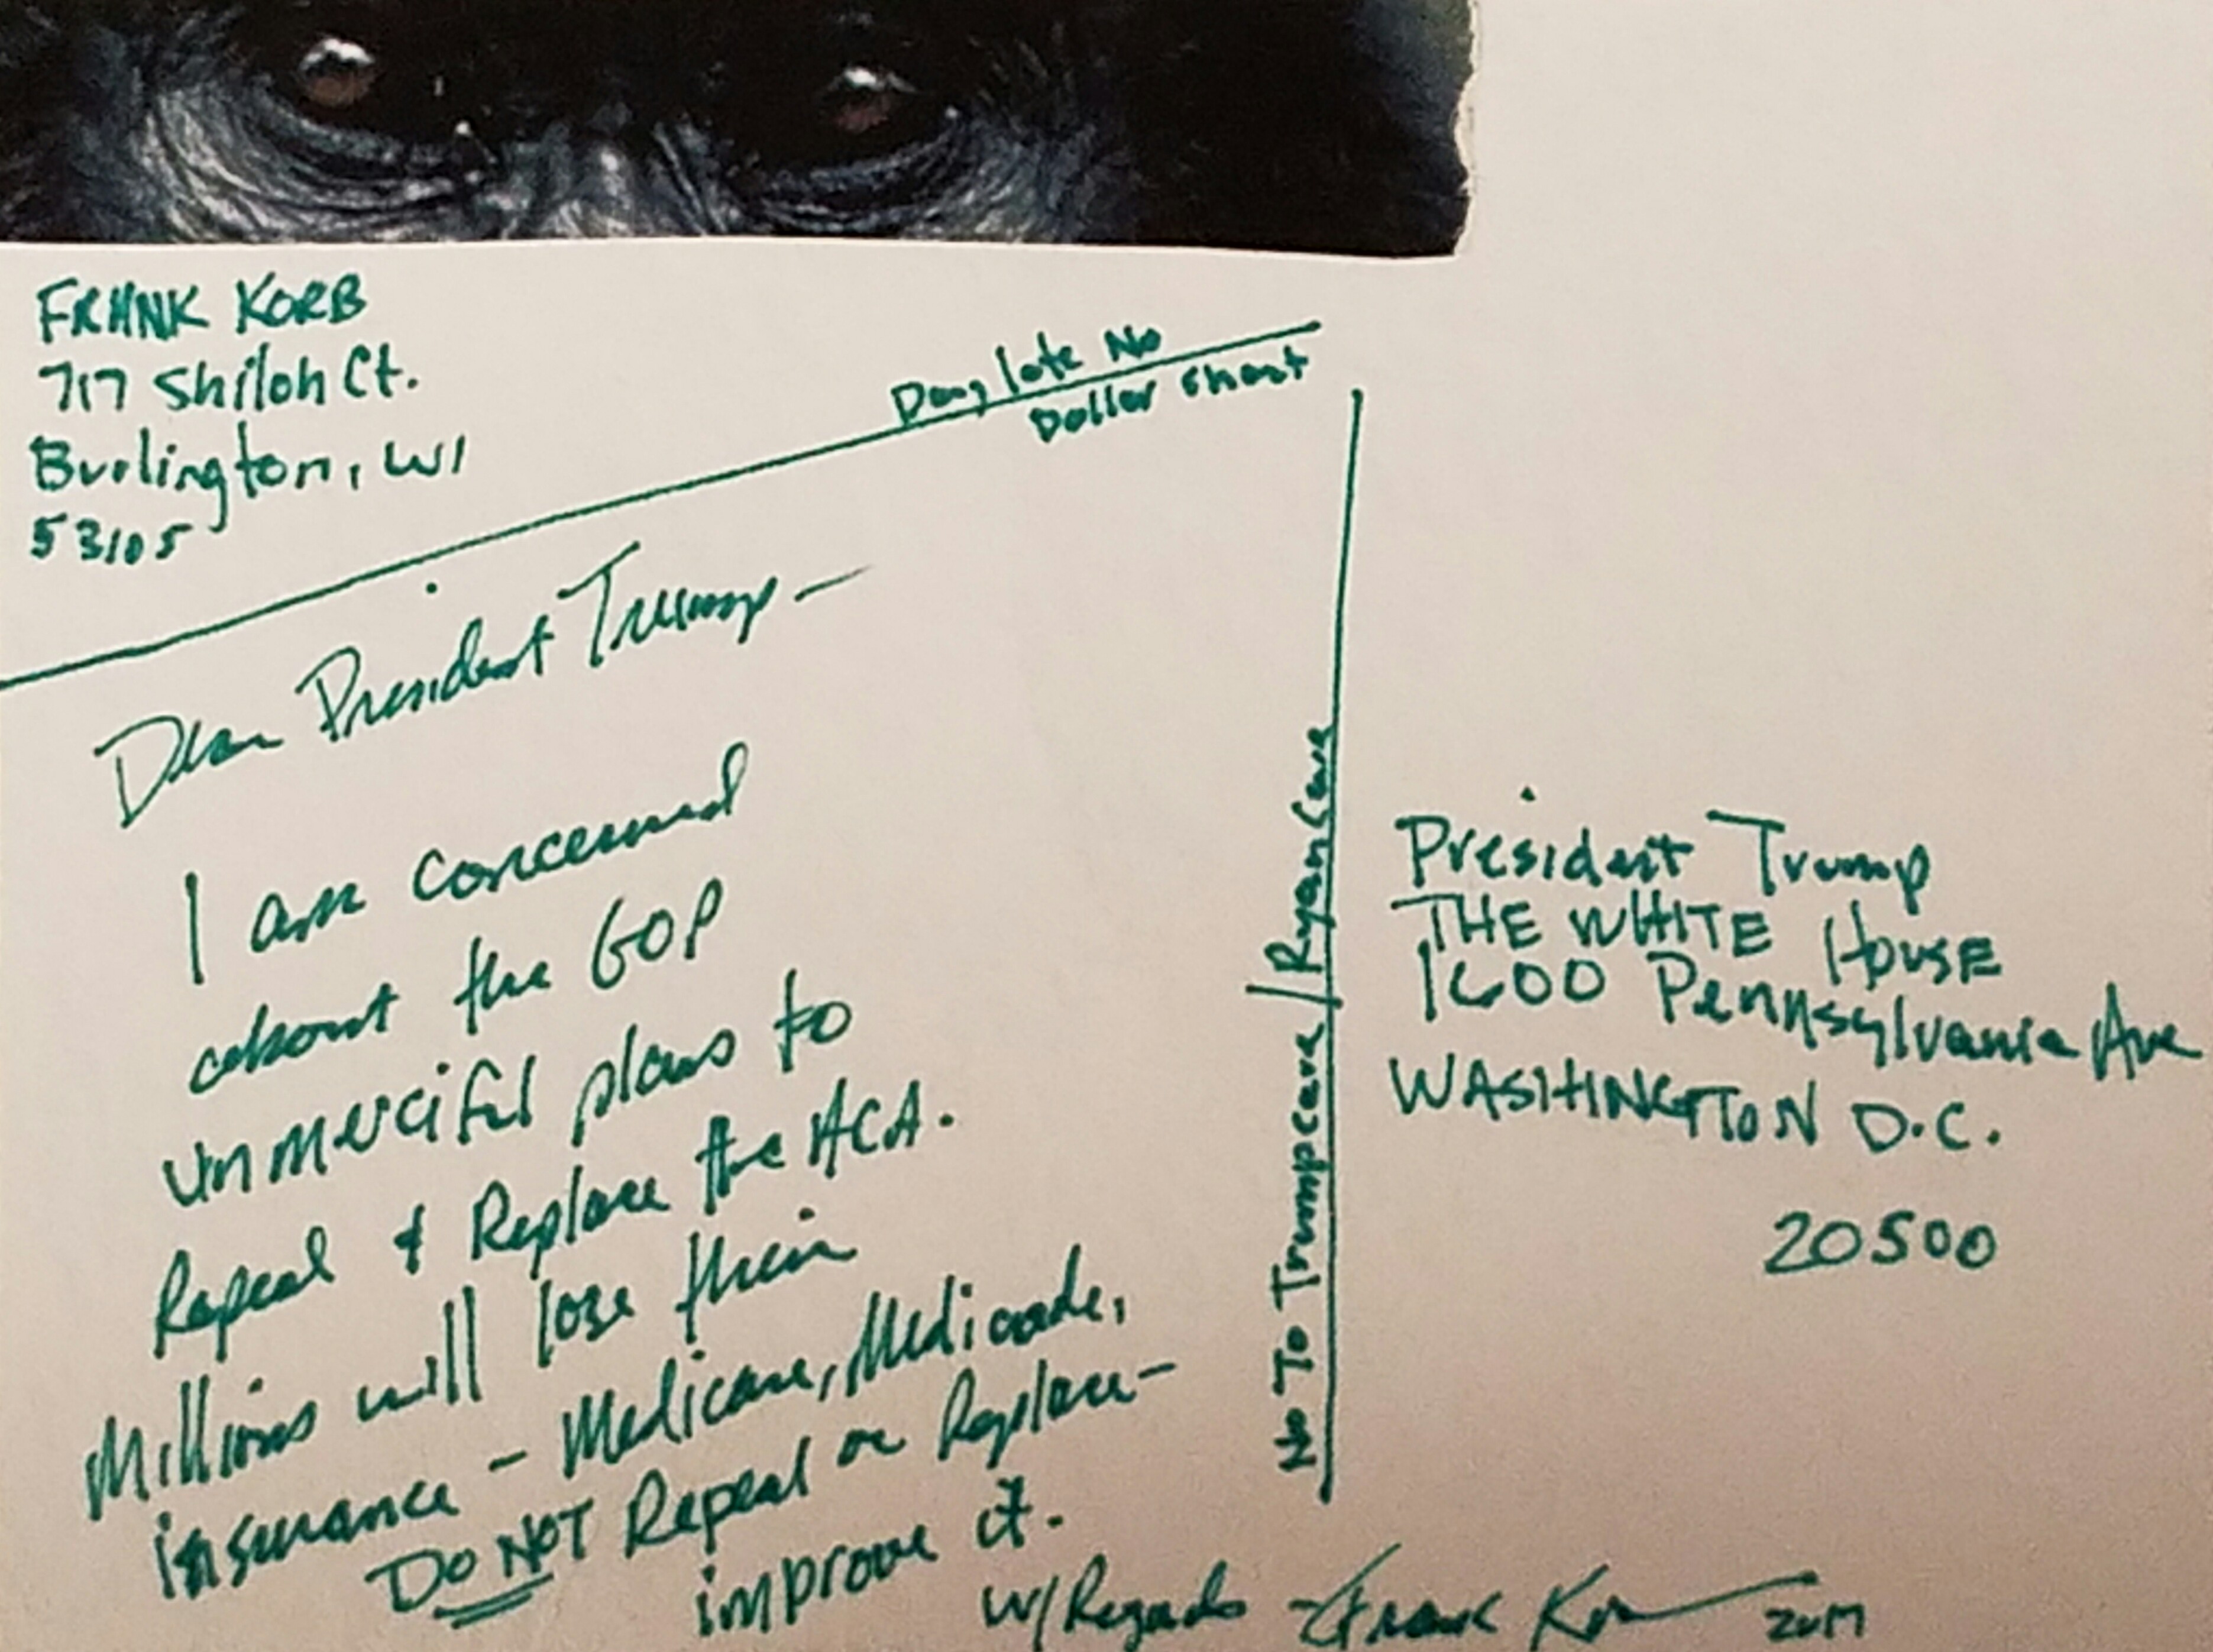 FRANK KORB
717 Shiloh Ct.
Burlington, WI
53105
Day late No
Dollar short
Dear President Trump —
I am concerned
about the GOP
unmerciful plans to
Repeal & Replace the ACA.
Millions will lose their
insurance - Medicare, Medicade,
DO NOT Repeal or Replace -
improve it.
w/ Regards - Frank Korb 2017
No To Trumpcare / Ryancare
President Trump
THE WHITE HOUSE
1600 Pennsylvania Ave
WASHINGTON D.C.
20500